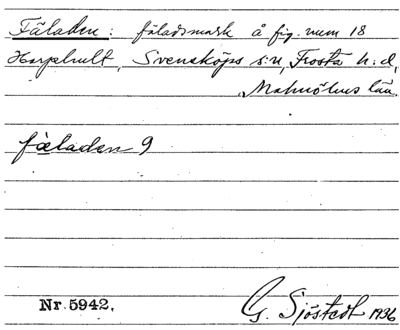 Fäladen: fäladsmark å fig. num 18
Harphult, Svensköps s:n, Frosta h:d,
Malmöhus län.
fæladen 9
Nr. 5942. G. Sjöstedt 1936